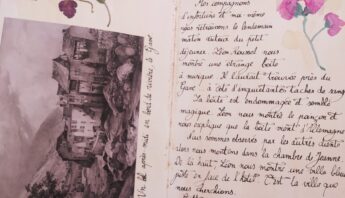 Un bel après midi au bord de rivière le Gave
Mes compagnons
d'infortune et ma même
nous retrouvons le lendemain
matin autour du petit
déjeuner. Léon Roussel nous
montre une étrange boîte
à musique. Il l'aurait trouvée près du
Gave, à côté d'inquiétantes taches de sang
La boîte est endommagée et semble
magique. Léon nous montre le poinçon et
nous explique que la boîte vient d'Allemagne
Nous sommes observés par les autres clients
alors nous montons dans la chambre de Jeanne
De là haut Léon nous montre une villa bleu
pâle en face de l'hôtel. C'est la ville que
nous cherchions.